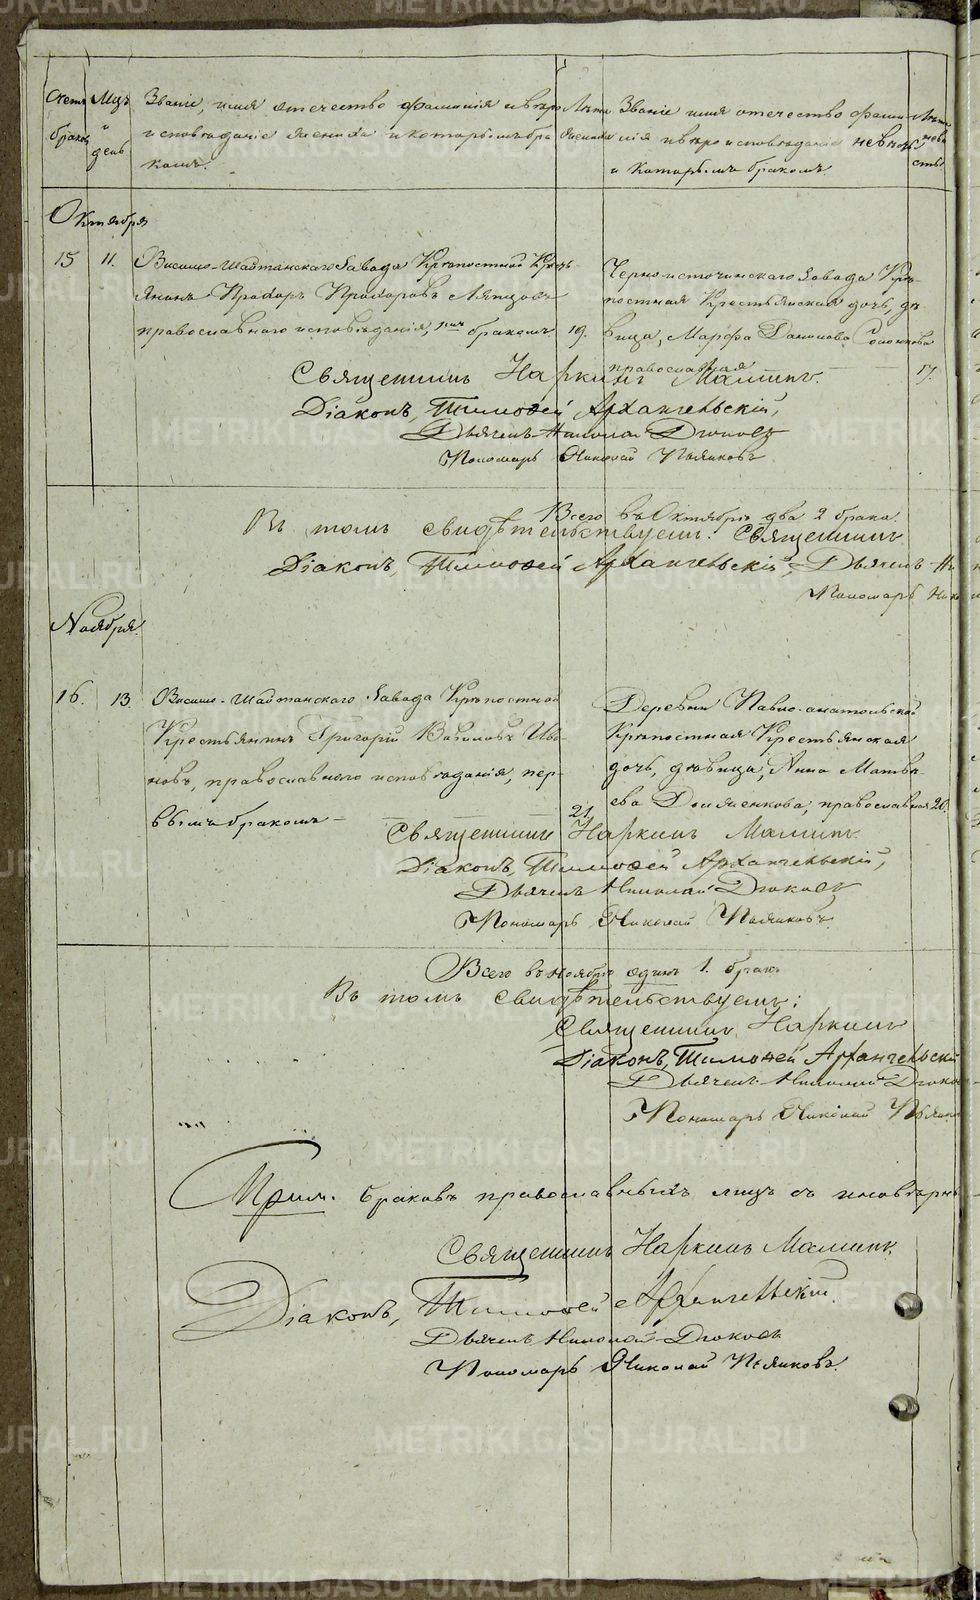 Счетъ браков
Мцъ и день
Званіе, имя отечество фамилія и вѣро
исповѣданіе жениха и которымъ бра
комъ.
Лѣта жениха
Званіе имя отечество фами
лія и вѣроисповѣданіе невѣсты
и которымъ бракомъ
Лѣта невѣсты
Октября
15 11. Висимо-Шайтанскаго Завода Крѣпостной Кресть
янинъ Прохоръ Прохоровъ Ляпцовъ
православнаго исповѣданія, 1мъ бракомъ 19.
Черноисточинскаго Завода Крѣ
постная Крестьянская дочь, дѣ
вица, Марфа Данилова
православная 17.
Священникъ Наркисъ Маминъ.
Діаконъ, Тимофей Архангельскій,
Дьячекъ Николай Дюковъ
Пономарь Николай Пьянковъ
Всего въ Октябрѣ два 2 брака.
Въ томъ свидѣтельствуемъ: Священникъ
Діаконъ, Тимофей Архангельскій, Дьячекъ Ни
Пономарь Нико
Ноября.
16. 13. Висимо-Шайтанскаго Завода Крѣпостной
Крестьянинъ Григорій Вавиловъ Ива
новъ, православнаго исповѣданія, пер
вымъ бракомъ 21.
Деревни Павло-анатольской
Крѣпостная Крестьянская
дочь, дѣвица, Анна Матвѣ
ева православная 20.
Священникъ Наркисъ Маминъ.
Діаконъ, Тимофей Архангельскій,
Дьячекъ Николай Дюковъ
Пономарь Николай Пьянковъ.
Всего въ ноябрѣ одинъ 1. бракъ
Въ томъ свидѣтельствуемъ:
Священникъ Наркисъ
Діаконъ, Тимофей Архангельскій
Дьячекъ Николай Дюков
Пономарь Николай Пьянк
Прим. браковъ православныхъ лицъ съ иновѣрн
Священникъ Наркисъ Маминъ.
Діаконъ, Тимофей Архангельскій.
Дьячекъ Николай Дюковъ
Пономарь Николай Пьянковъ.
METRIKI.GASO-URAL.RU